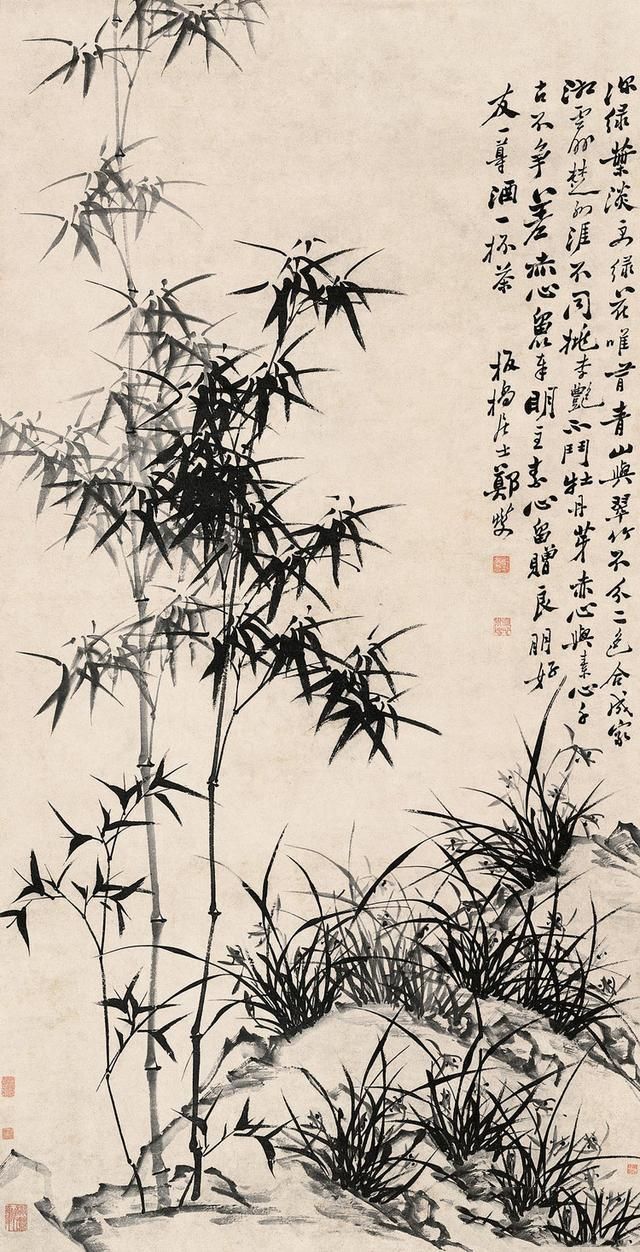 深綠葉淡綠花唯青山與翠竹不分二色合成家
湘雲楚涯不同桃李艷不鬥牡丹芽赤心與素心千
古不争差赤心留奉明主素心留贈良朋好
友一尊酒一杯茶 板橋居士鄭燮